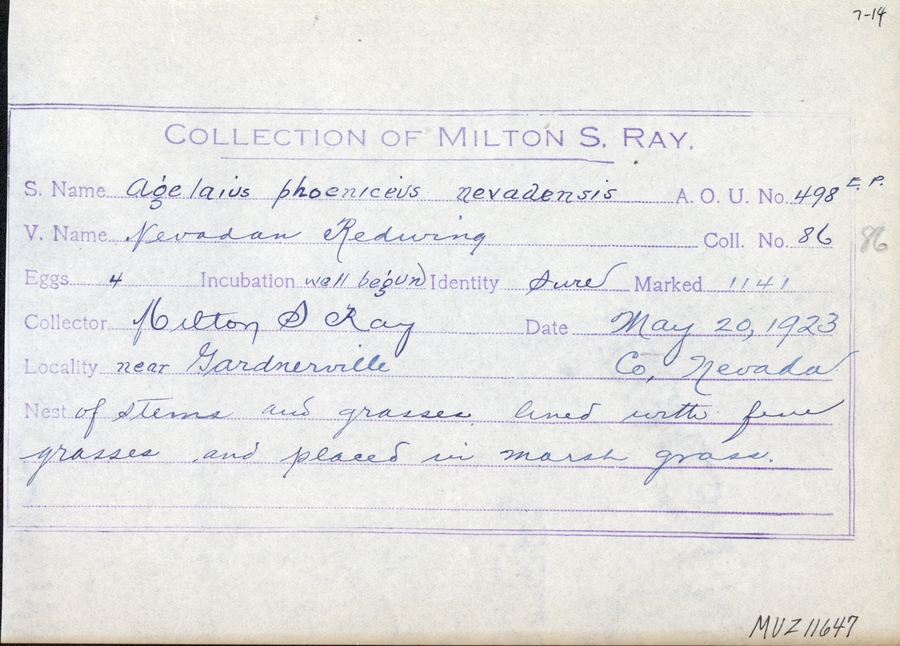 7-14
COLLECTION OF MILTON S. RAY.
S. Name Agelaius phoeniceus nevadensis A. O. U. No. 498 E. P.
V. Name Nevadan Redwing Coll. No. 86 86
Eggs 4 Incubation well begun Identity Sure Marked 1141
Collector Milton S Ray Date May 20, 1923
Locality near Gardnerville Co, Nevada
Nest of stems and grasses lined with fine
grasses and placed in marsh grass.
MVZ 11647